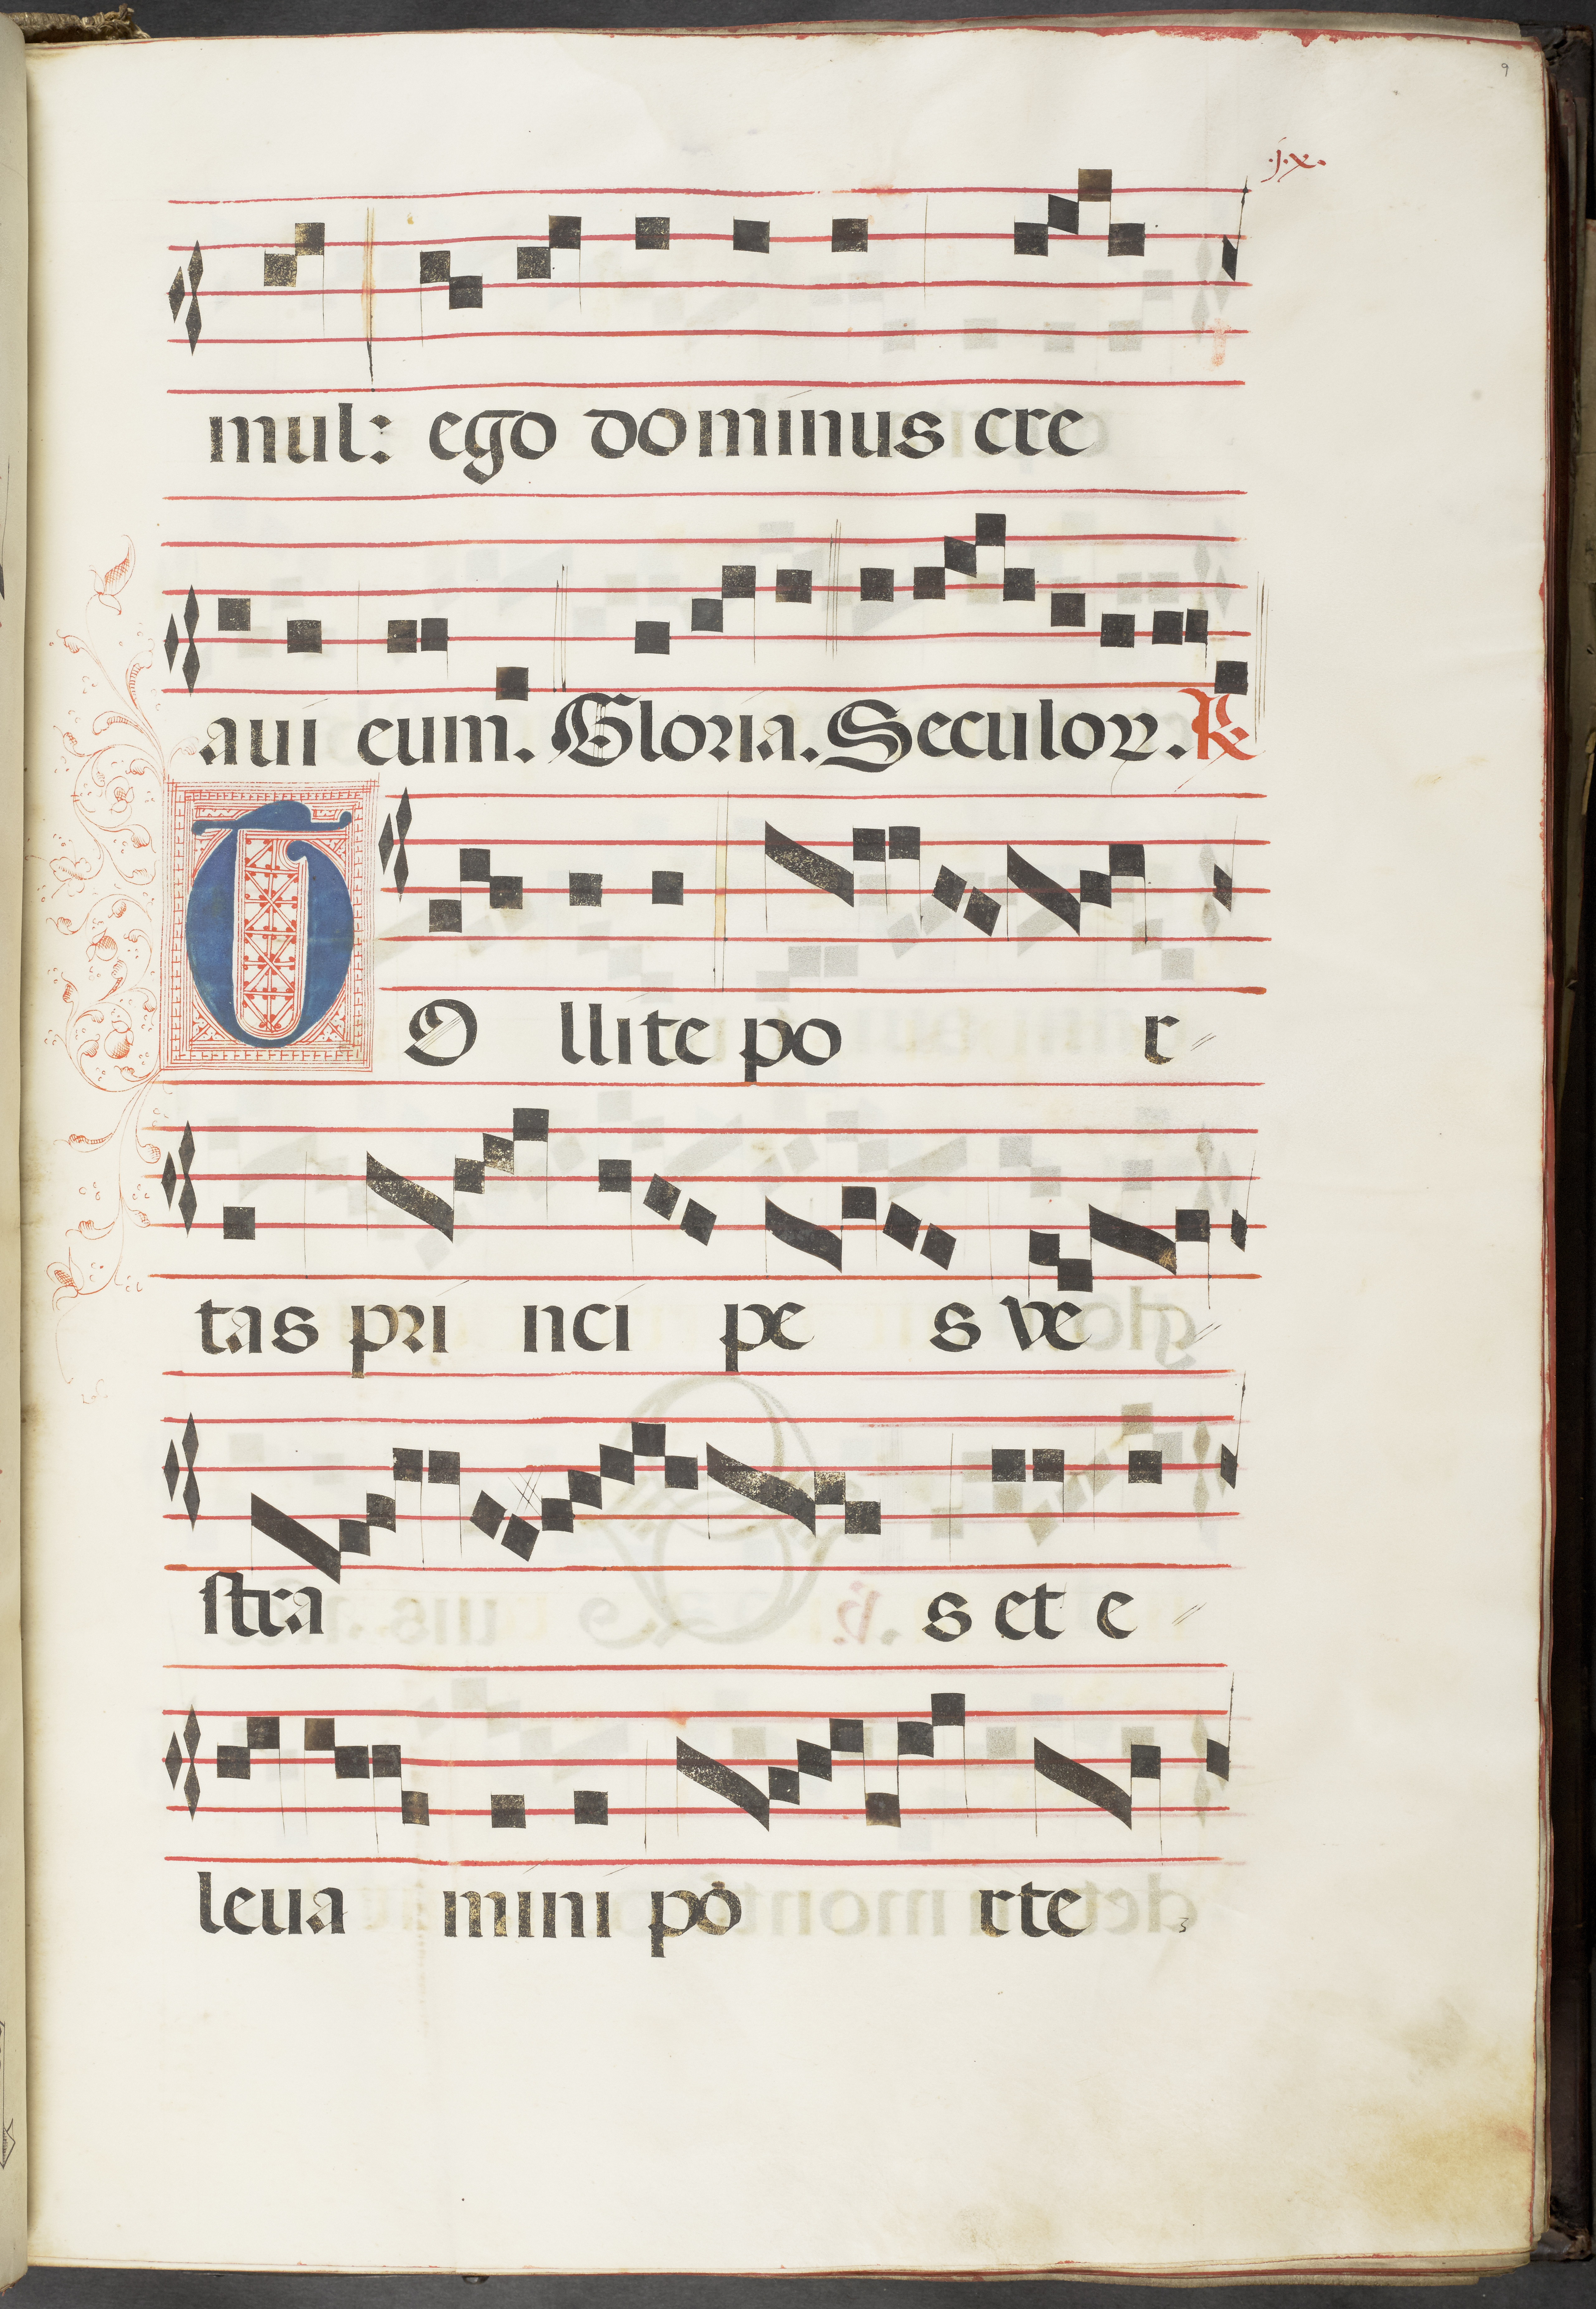 9
.j.x.
mul: ego dominus cre
aui eum. Gloria. Seculoꝝ. ℟
TO llite po r
tas pri nci pe s ve
stra s et e
leua mini po rte